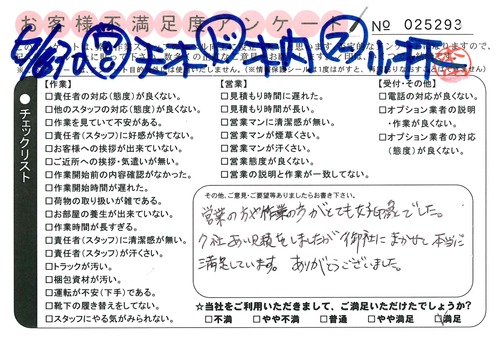 お客様不満足度アンケート
№ 025293
チェックリスト
【作業】
□責任者の対応(態度)が良くない。
□他のスタッフの対応(態度)が良くない。
□作業を見ていて不安がある。
□責任者(スタッフ)に好感が持てない。
□お客様への挨拶が出来ていない。
□ご近所への挨拶・気遣いが無い。
□作業開始前の内容確認がなかった。
□作業開始時間が遅れた。
□荷物の取り扱いが雑である。
□お部屋の養生が出来ていない。
□作業時間が長すぎる。
□責任者(スタッフ)に清潔感が無い。
□責任者(スタッフ)が汗くさい。
□トラックが汚い。
□梱包資材が汚い。
□運転が不安(下手)である。
□靴下の履き替えをしてない。
□スタッフにやる気がみられない。
【営業】
□見積もり時間に遅れた。
□見積もり時間が長い。
□営業マンに清潔感が無い。
□営業マンが煙草くさい。
□営業マンが汗くさい。
□営業態度が良くない。
□営業の説明と作業が一致してない。
【受付・その他】
□電話の対応が良くない。
□オプション業者の説明
・作業が良くない。
□オプション業者の対応
(態度)が良くない。
その他、ご意見・ご要望等ありましたらお書き下さい。
営業の方や作業の方がとても好印象でした。
他社あい見積をしましたが御社にまかせて本当に
満足しています。ありがとうございました。
★当社をご利用いただきまして、ご満足いただけたでしょうか?
□不満 □やや不満 □普通 □やや満足 □満足